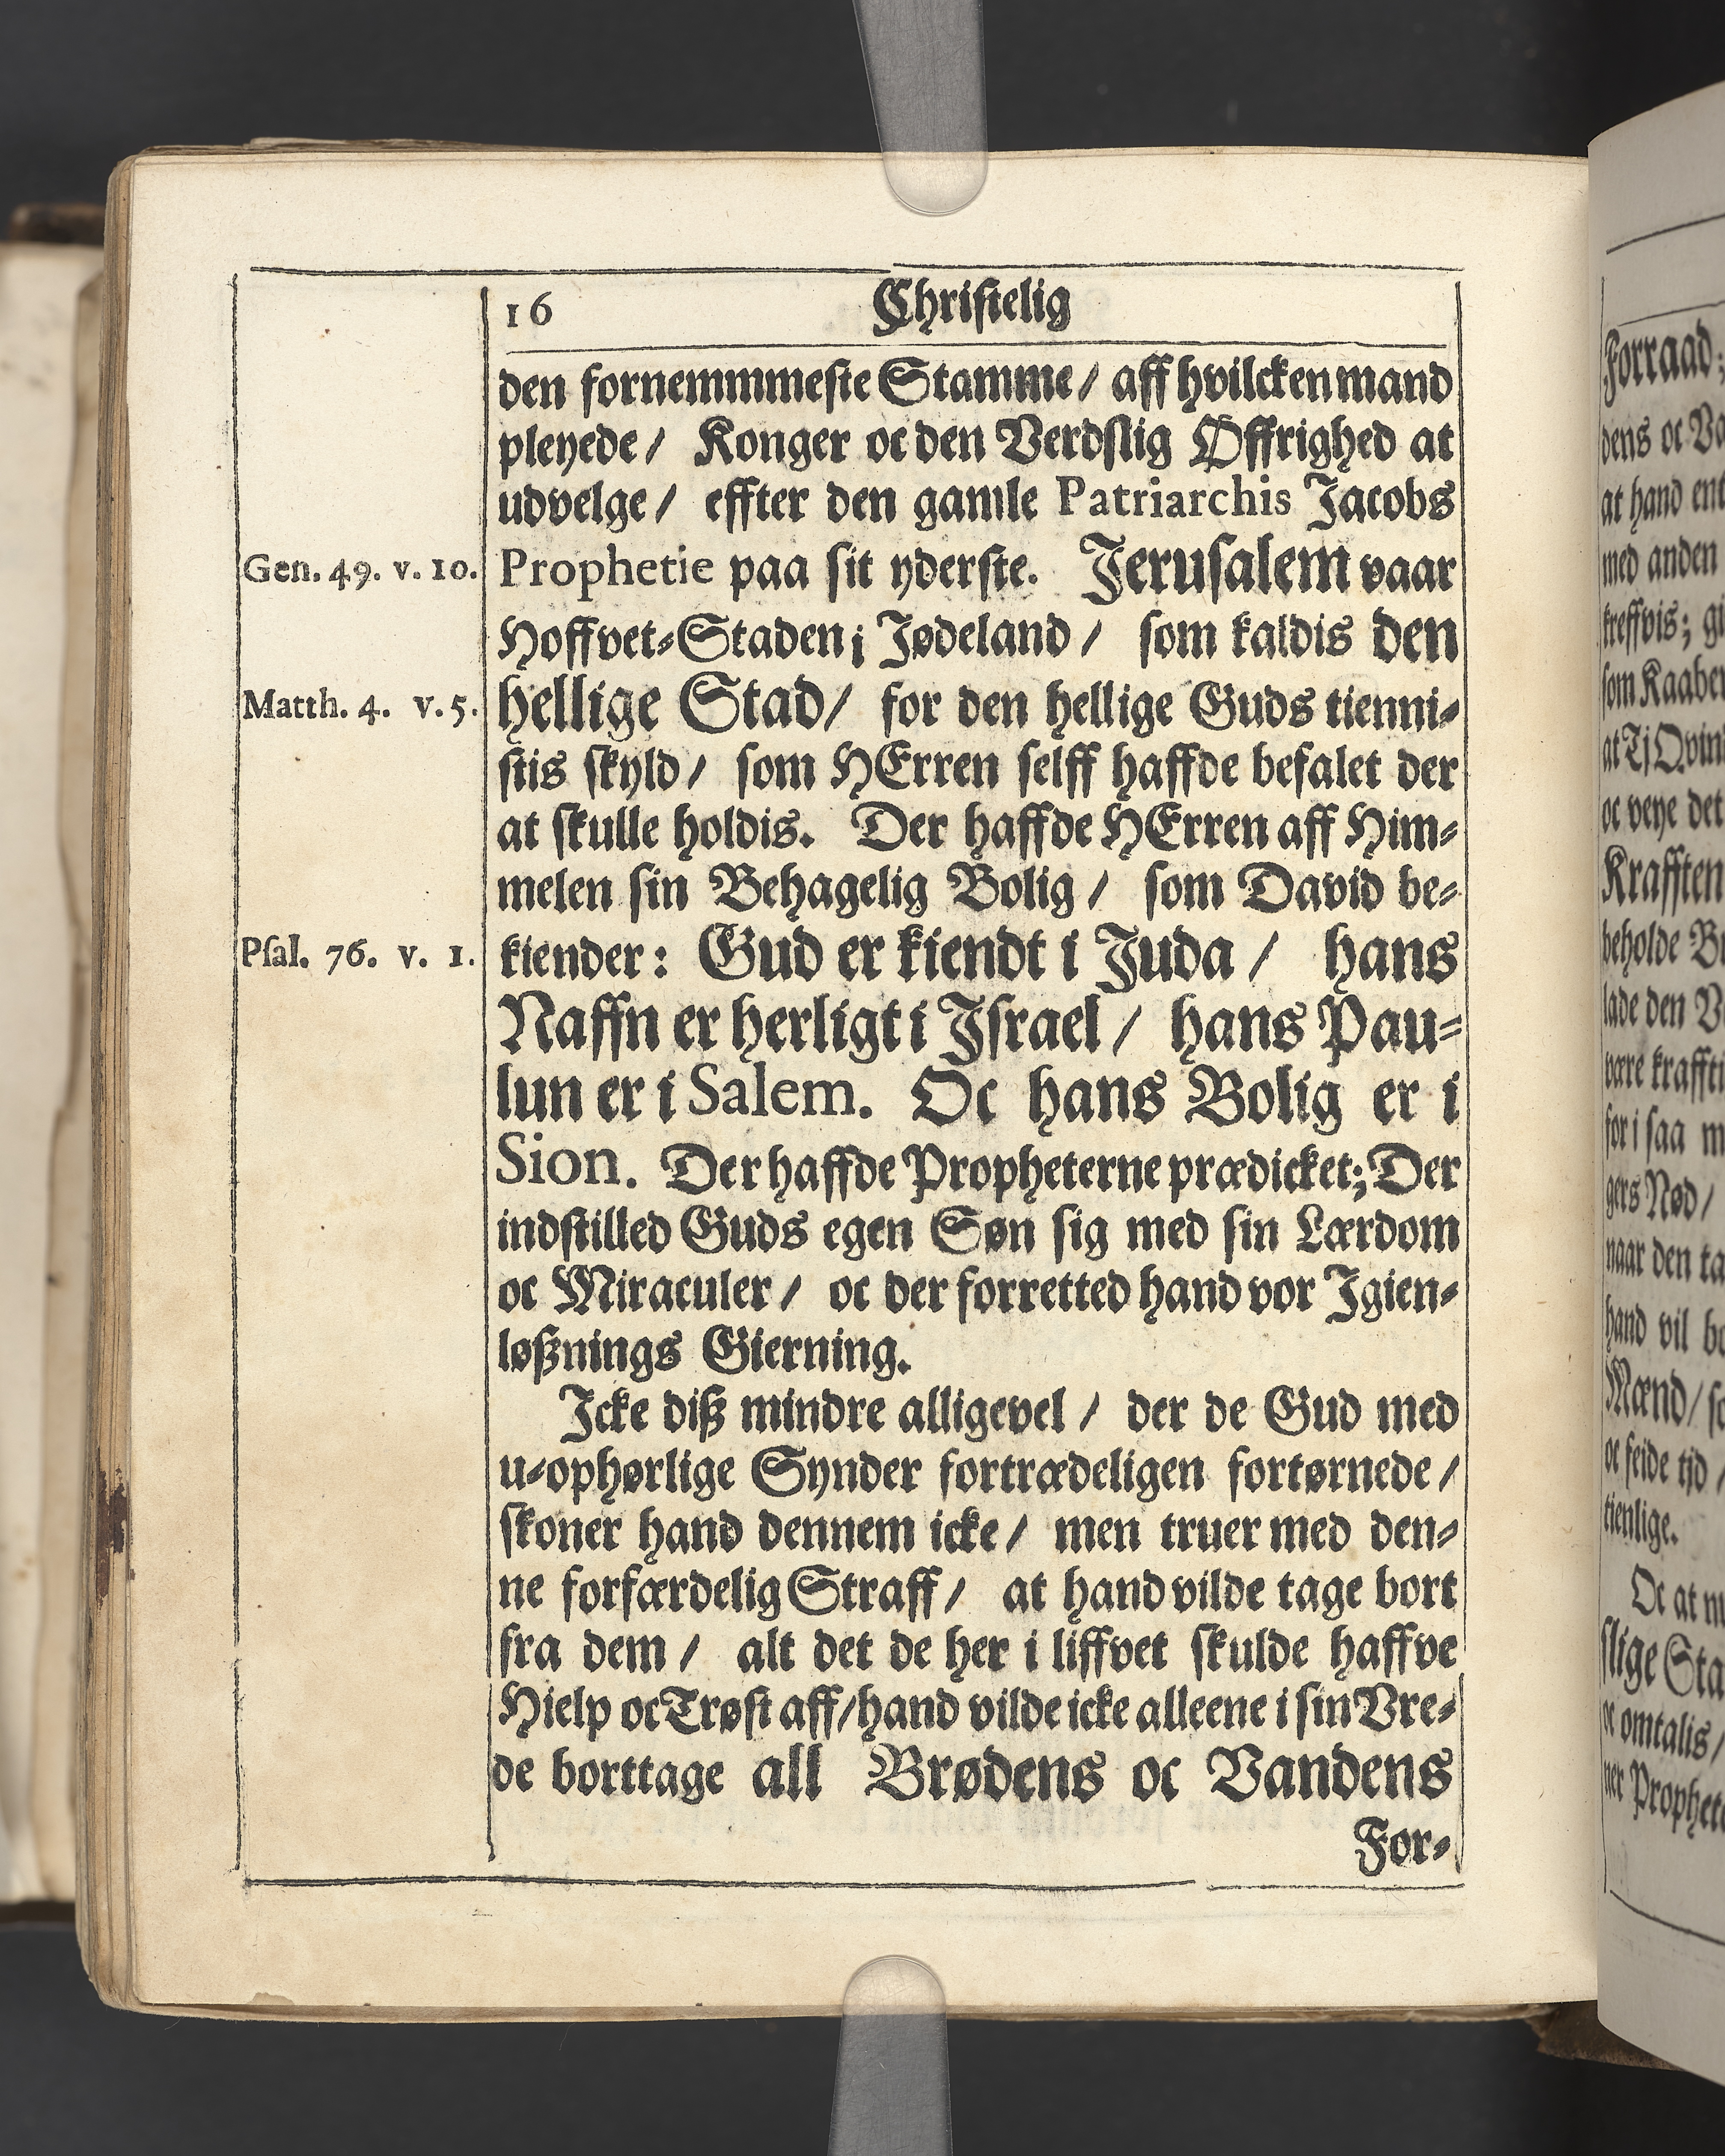 16 Christelig
den fornemmmeste Stamme / aff hvilcken mand
pleyede / Konger oc den Verdslig Øffrighed at
udvelge / effter den gamle Patriarchis Jacobs
Gen. 49. v. 10. Prophetie paa sit yderste. Jerusalem vaar
Hoffvet-Staden i Jødeland / som kaldis den
Matth. 4. v. 5. hellige Stad / for den hellige Guds tienni-
stis skyld / som HErren selff haffde befalet der
at skulle holdis. Der haffde HErren aff Him-
melen sin Behagelig Bolig / som David be-
Psal. 76. v. 1. kiender: Gud er kiendt i Juda / hans
Naffn er herligt i Jsrael / hans Pau-
lun er i Salem. Oc hans Bolig er i
Sion. Der haffde Propheterne prædicket; Der
indstilled Guds egen Søn sig med sin Lærdom
oc Miraculer / oc der forretted hand vor Jgien-
løßnings Gierning.
Jcke diß mindre alligevel / der de Gud med
u-ophørlige Synder fortrædeligen fortørnede /
skoner hand dennem icke / men truer med den-
ne forfærdelig Straff / at hand vilde tage bort
fra dem / alt det de her i liffvet skulde haffve
Hielp oc Trøst aff / hand vilde icke alleene i sin Vre-
de borttage all Brødens oc Vandens
For-
Forraad;
dens oc
at hand
med anden
som
at Tj
oc veye det
Krafften
beholde
lade den
være
for i saa
gers Nød /
naar den
hand vil
Mænd /
oc feide tjd /
tienlige.
Oc at
slige
oc omtalis /
ner